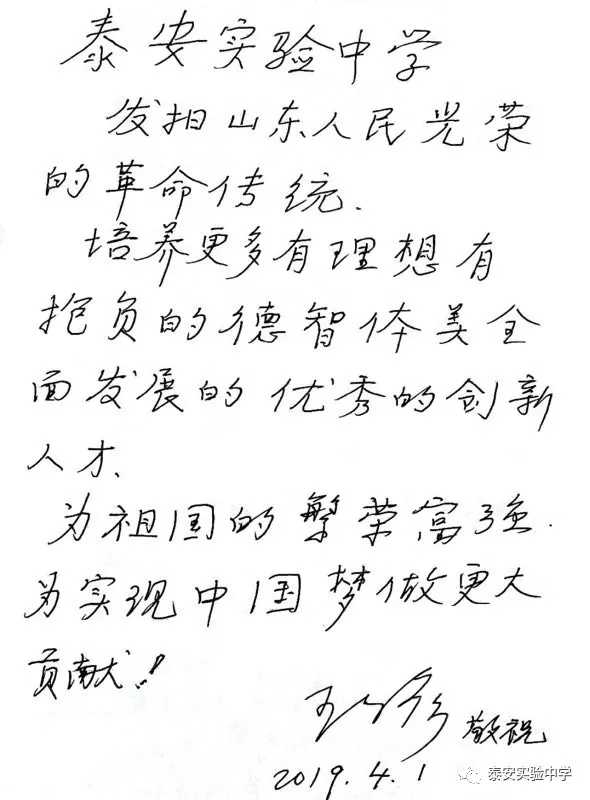 泰安实验中学
发扬山东人民光荣
的革命传统.
培养更多有理想有
抱负的德智体美全
面发展的优秀的创新
人才、
为祖国的繁荣富强.
为实现中国梦做更大
贡献!
敬祝
2019.4.1
泰安实验中学